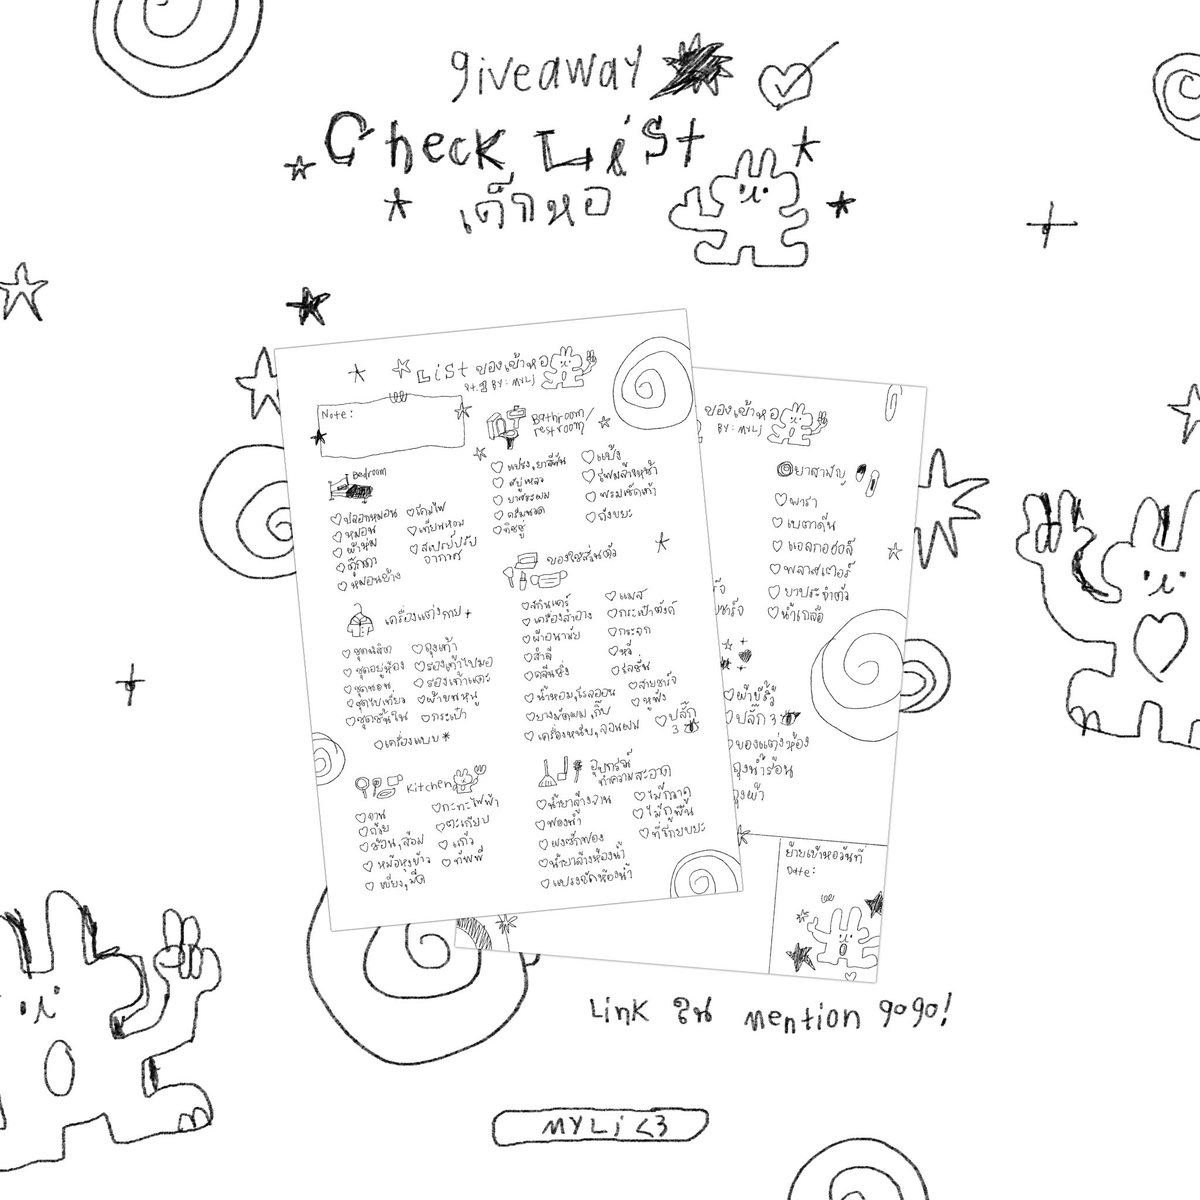 giveaway
Check List
เด็กหอ
List ของเข้าหอ
BY: MYLi
Note:
Bedroom
ปลอกหมอน
หมอน
ผ้าห่ม
ตุ๊กตา
หมอนข้าง
โคมไฟ
เทียนหอม
สเปรย์ปรับ
อากาศ
เครื่องแต่งกาย
ชุดนิสิต
ชุดอยู่ห้อง
ชุดนอน
ชุดไปเที่ยว
ชุดชั้นใน
เครื่องแบบ
ถุงเท้า
รองเท้าไปมอ
รองเท้าแตะ
ผ้าขนหนู
กระเป๋า
Kitchen
จาน
ถ้วย
ช้อน,ส้อม
หม้อหุงข้าว
เขียง,มีด
กะทะไฟฟ้า
ตะเกียบ
แก้ว
ทัพพี
Bathroom/
restroom
แปรง,ยาสีฟัน
สบู่เหลว
ยาสระผม
ครีมนวด
ทิชชู่
แป้ง
โฟมล้างหน้า
พรมเช็ดเท้า
ถังขยะ
ของใช้ส่วนตัว
สกินแคร์
เครื่องสำอาง
ผ้าอนามัย
สำลี
คลีนซิ่ง
น้ำหอม,โรลออน
ยางมัดผม,กิ๊บ
เครื่องหนีบ,ลอนผม
แมส
กระเป๋าตังค์
กระจก
หวี
โลชั่น
สายชาร์จ
หูฟัง
ปลั๊ก
3
อุปกรณ์
ทำความสะอาด
น้ำยาล้างจาน
ฟองน้ำ
ผงซักฟอก
น้ำยาล้างห้องน้ำ
แปรงขัดห้องน้ำ
ไม้กวาด
ไม้ถูพื้น
ที่โกยขยะ
ของเข้าหอ
BY: MYLi
ยาสามัญ
พารา
เบตาดีน
แอลกอฮอล์
พลาสเตอร์
ยาประจำตัว
น้ำเกลือ
ผ้าขี้ริ้ว
ปลั๊ก 3
ของแต่งห้อง
ถุงน้ำร้อน
ถุงผ้า
ย้ายเข้าหอวันที่
Date:
Link ใน mention gogo!
MYLi <3